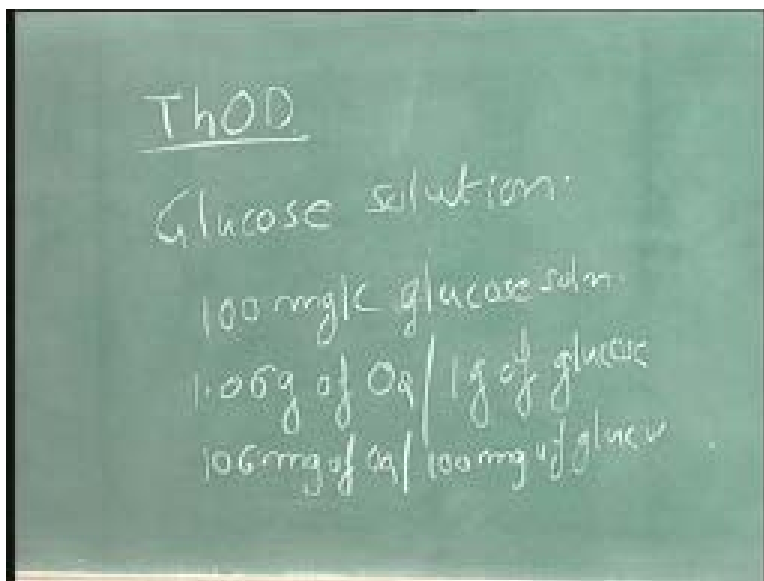 ThOD
Glucose solution:
100 mg/L glucose soln.
1.06g of O2/1g of glucose
106mg of O2/100mg of